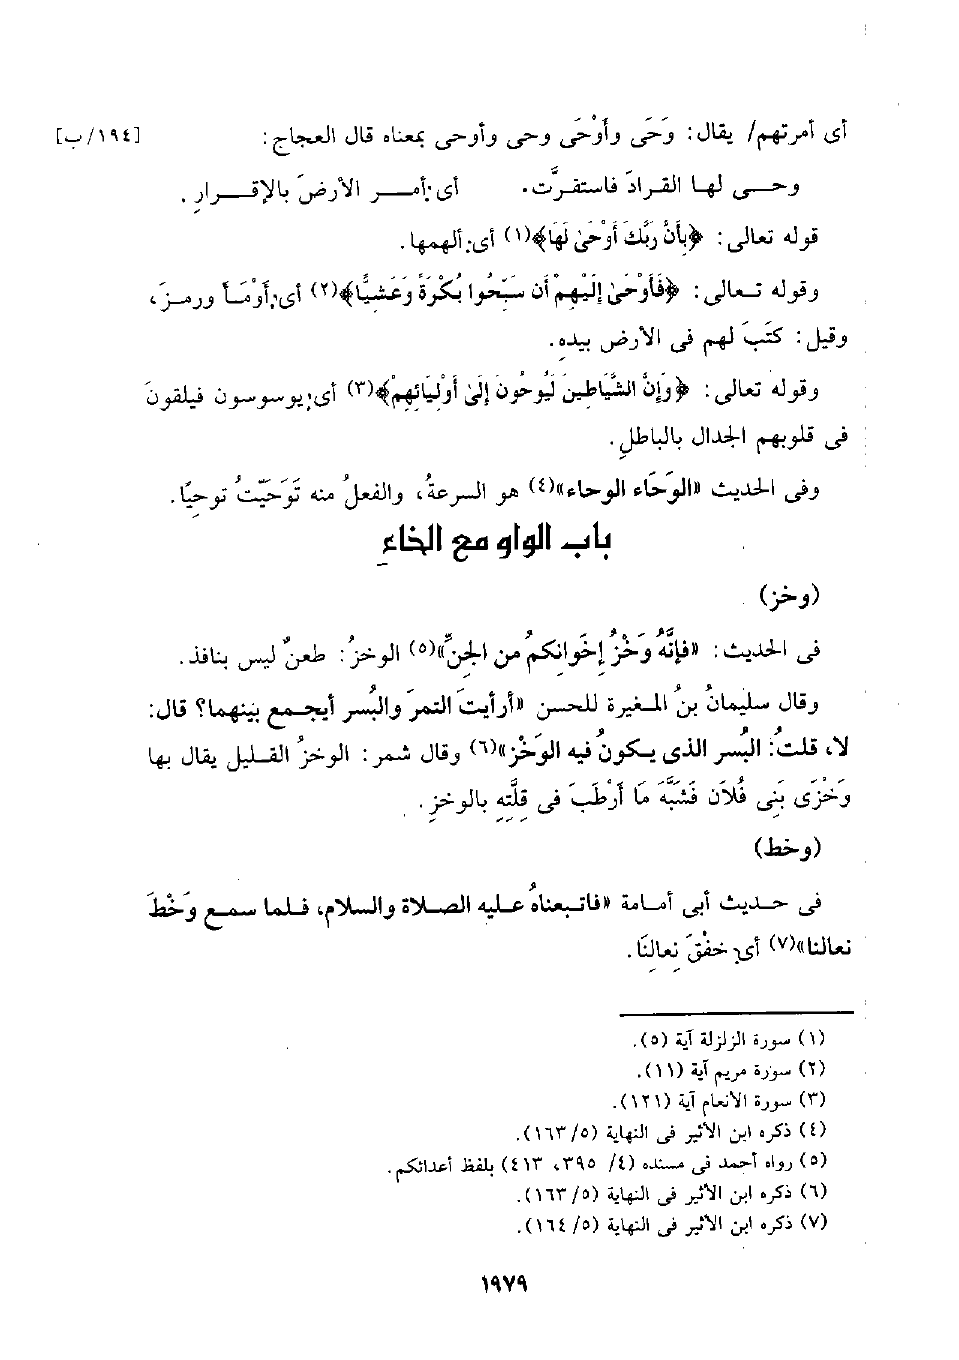 أى أمرتهم/ يقال: وَحَى وأَوْحَى وحى وأوحى بمعناه قال العجاج: [١٩٤/ب]
وحـــى لهـا القرادَ فاستقرَّت. أى: أمـــر الأرضَ بالإقـــرارِ .
قوله تعالى: ﴿بِأَنَّ رَبَّكَ أَوْحَىٰ لَهَا﴾(١) أى: ألهمها.
وقوله تـعالى: ﴿فَأَوْحَىٰ إِلَيْهِمْ أَن سَبِّحُوا بُكْرَةً وَعَشِيًّا﴾(٢) أى: أَوْمَـأَ ورمـزَ،
وقيل: كتَبَ لهم فى الأرضِ بيدهِ.
وقوله تعالى: ﴿وَإِنَّ الشَّيَاطِينَ لَيُوحُونَ إِلَىٰ أَوْلِيَائِهِمْ﴾(٣) أى: يوسوسون فيلقونَ
فى قلوبهم الجدال بالباطلِ.
وفى الحديث «الوَحَاء الوحاء»(٤) هو السرعةُ، والفعلُ منه تَوَحَيّتُ توحيًا.
باب الواو مع الخاءِ
(وخز)
فى الحديث: «فإنَّهُ وَخْزُ إخَوانِكمُ من الجنِّ»(٥) الوخزُ: طعنٌ ليس بنافذ.
وقال سليمانُ بنُ المـغيرة للحسن «أرأيتَ التمرَ والبُسر أيجـمع بينهما؟ قال:
لا، قلتُ: البُسر الذى يـكونُ فيه الوَخْز»(٦) وقال شمر: الوخزُ القـليل يقال بها
وَخْزَى بَنِى فُلاَن فَشَبَّهَ مَا أَرْطَبَ فى قِلَّتِهِ بالوخزِ .
(وخط)
فى حـديث أبى أمـامة «فاتـبعناهُ عـليه الصـلاة والسلام، فـلما سمـع وَخْطَ
نعالنا»(٧) أى: خفْقَ نِعالِنَا.
(١) سورة الزلزلة آية (٥).
(٢) سورة مريم آية (١١).
(٣) سورة الأنعام آية (١٢١).
(٤) ذكره ابن الأثير فى النهاية (١٦٣/٥).
(٥) رواه أحمد فى مسنده (٤/ ٣٩٥، ٤١٣) بلفظ أعدائكم.
(٦) ذكره ابن الأثير فى النهاية (١٦٣/٥).
(٧) ذكره ابن الأثير فى النهاية (١٦٤/٥).
١٩٧٩